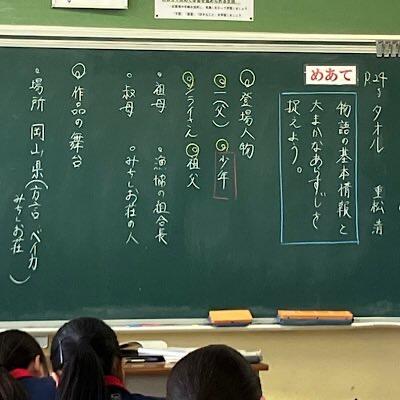 P.24〜 タオル 重松 清
めあて
物語の基本情報と
大まかなあらすじを
捉えよう。
登場人物
父 少年
シライさん 祖父
・祖母 ・漁協の組合長
・叔母 ・みちしお荘の人
作品の舞台
・場所 岡山県(方言 ベイカ
みちしお荘)